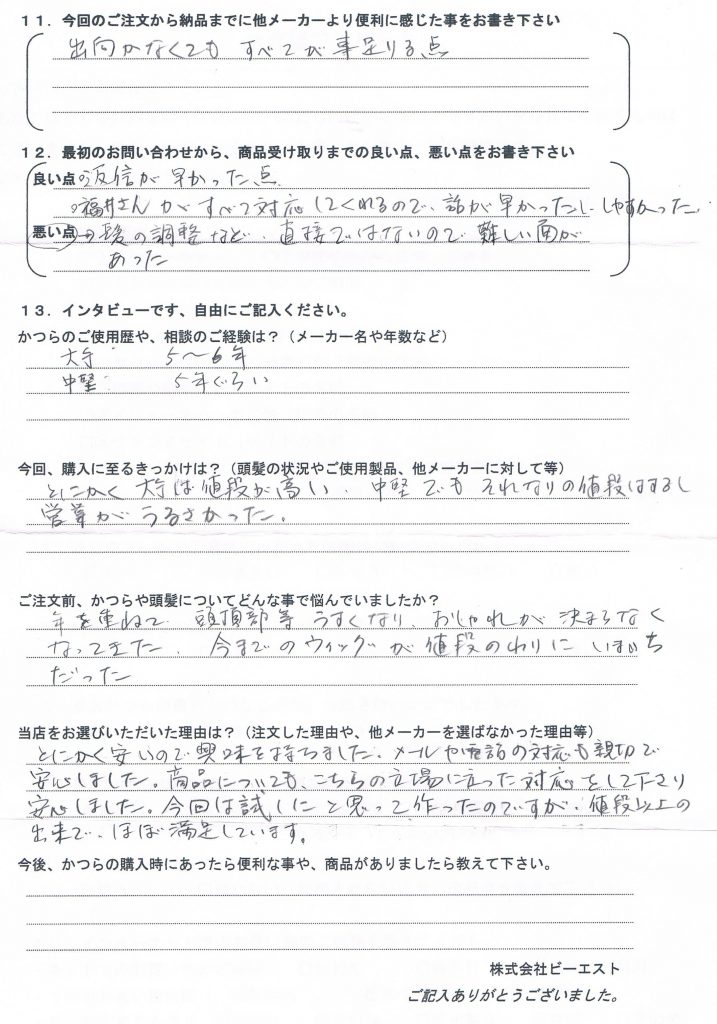 １１．今回のご注文から納品までに他メーカーより便利に感じた事をお書き下さい
出向かなくても すべてが事足りる点
１２．最初のお問い合わせから、商品受け取りまでの良い点、悪い点をお書き下さい
良い点 ○返信が早かった点
○福井さんがすべて対応してくれるので、話が早かったし、しやすかった。
悪い点 髪の調整など、直接ではないので難しい面が
あった
１３．インタビューです、自由にご記入ください。
かつらのご使用歴や、相談のご経験は？（メーカー名や年数など）
大手： ５～６年
中堅： ５年ぐらい
今回、購入に至るきっかけは？（頭髪の状況やご使用製品、他メーカーに対して等）
とにかく大手は値段が高い、中堅でもそれなりの値段はするし
営業がうるさかった。
ご注文前、かつらや頭髪についてどんな事で悩んでいましたか？
年を重ねて、頭頂部等うすくなり、おしゃれが決まらなく
なってきた、今までのウィッグが値段のわりにいまいち
だった
当店をお選びいただいた理由は？（注文した理由や、他メーカーを選ばなかった理由等）
とにかく安いので興味を持ちました。メールや電話の対応も親切で
安心しました。商品についても、こちらの立場に立った対応をして下さり
安心しました。今回は試しにと思って作ったのですが、値段以上の
出来で、ほぼ満足しています。
今後、かつらの購入時にあったら便利な事や、商品がありましたら教えて下さい。
株式会社ビーエスト
ご記入ありがとうございました。